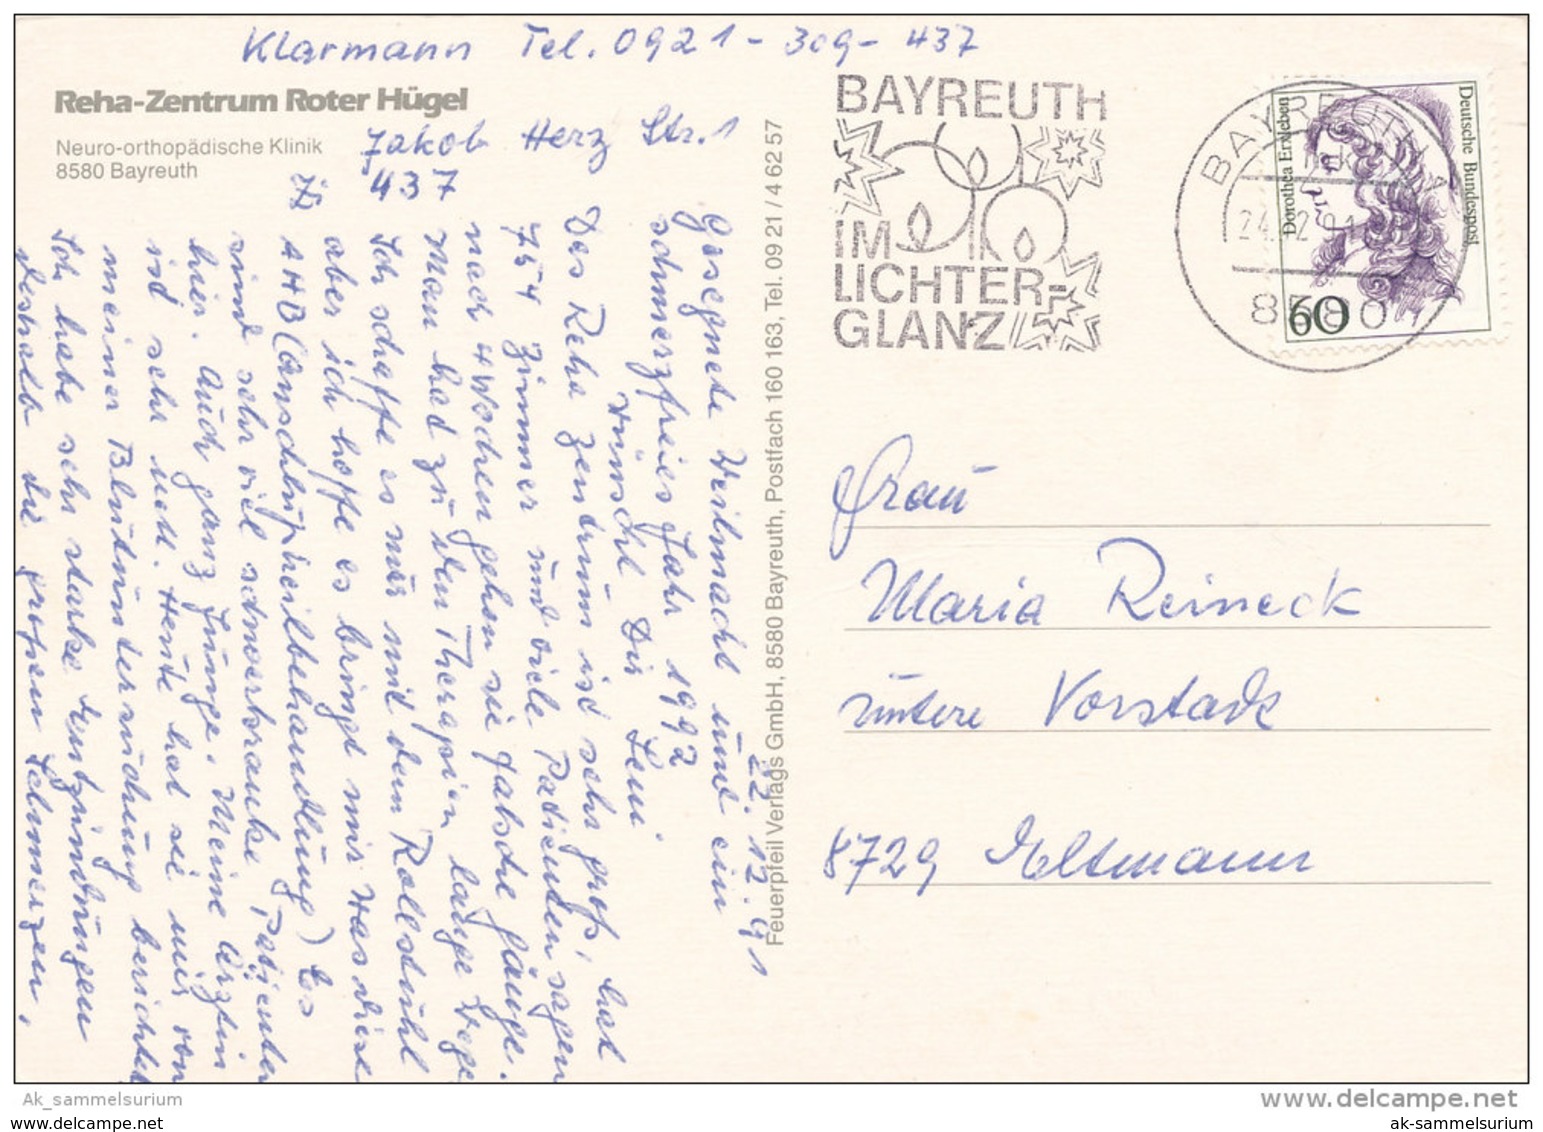 Klarmann Tel. 0921-309-437
Reha-Zentrum Roter Hügel
Neuro-orthopädische Klinik
8580 Bayreuth
Jakob Herz Str. 1
Zi 437
22.12.91
Gesegnete Weihnacht und ein
schmerzfreies Jahr 1992
wünscht Dir Leni.
Das Reha Zentrum ist sehr groß, hat
754 Zimmer und viele Patienten sagen
nach 4 Wochen gehen sie falsche Gänge.
Man hat zu den Therapien lange Wege
Ich schaffe es nur mit dem Rollstuhl
aber ich hoffe es bringt mir was diese
AHB (Anschlußheilbehandlung) Es
sind sehr viel schwerkranke Patienten
hier. Auch ganz junge. Meine Ärztin
ist sehr nett. Heute hat sie mir von
meiner Blutuntersuchung berichtet
Ich habe sehr starke Entzündungen
deshalb die großen Schmerzen.
Feuerpfeil Verlags GmbH, 8580 Bayreuth, Postfach 160 163, Tel. 09 21 / 4 62 57
BAYREUTH
IM
LICHTER-
GLANZ
BAYREUTH 1
24.12.91
8580
Deutsche Bundespost
Dorothea Erxleben
60
Frau
Maria Reineck
untere Vorstadt
8729 Eltmann
Ak_sammelsurium
www.delcampe.net
www.ak-sammelsurium.com
ak-sammelsurium